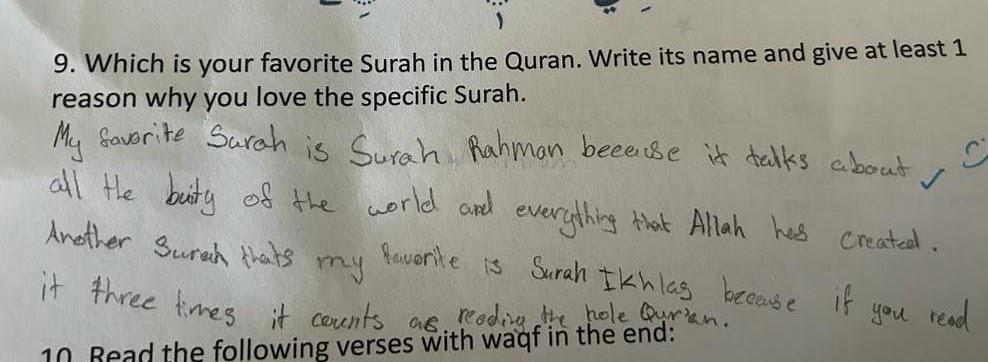 9. Which is your favorite Surah in the Quran. Write its name and give at least 1
reason why you love the specific Surah.
My favorite Surah is Surah Rahman beceuse it talks about
all the buity of the world and everything that Allah has created.
Another Surah thats my favorite is Surah Ikhlas because if you read
it three times it counts as reading the hole Qur'an.
10. Read the following verses with waqf in the end: